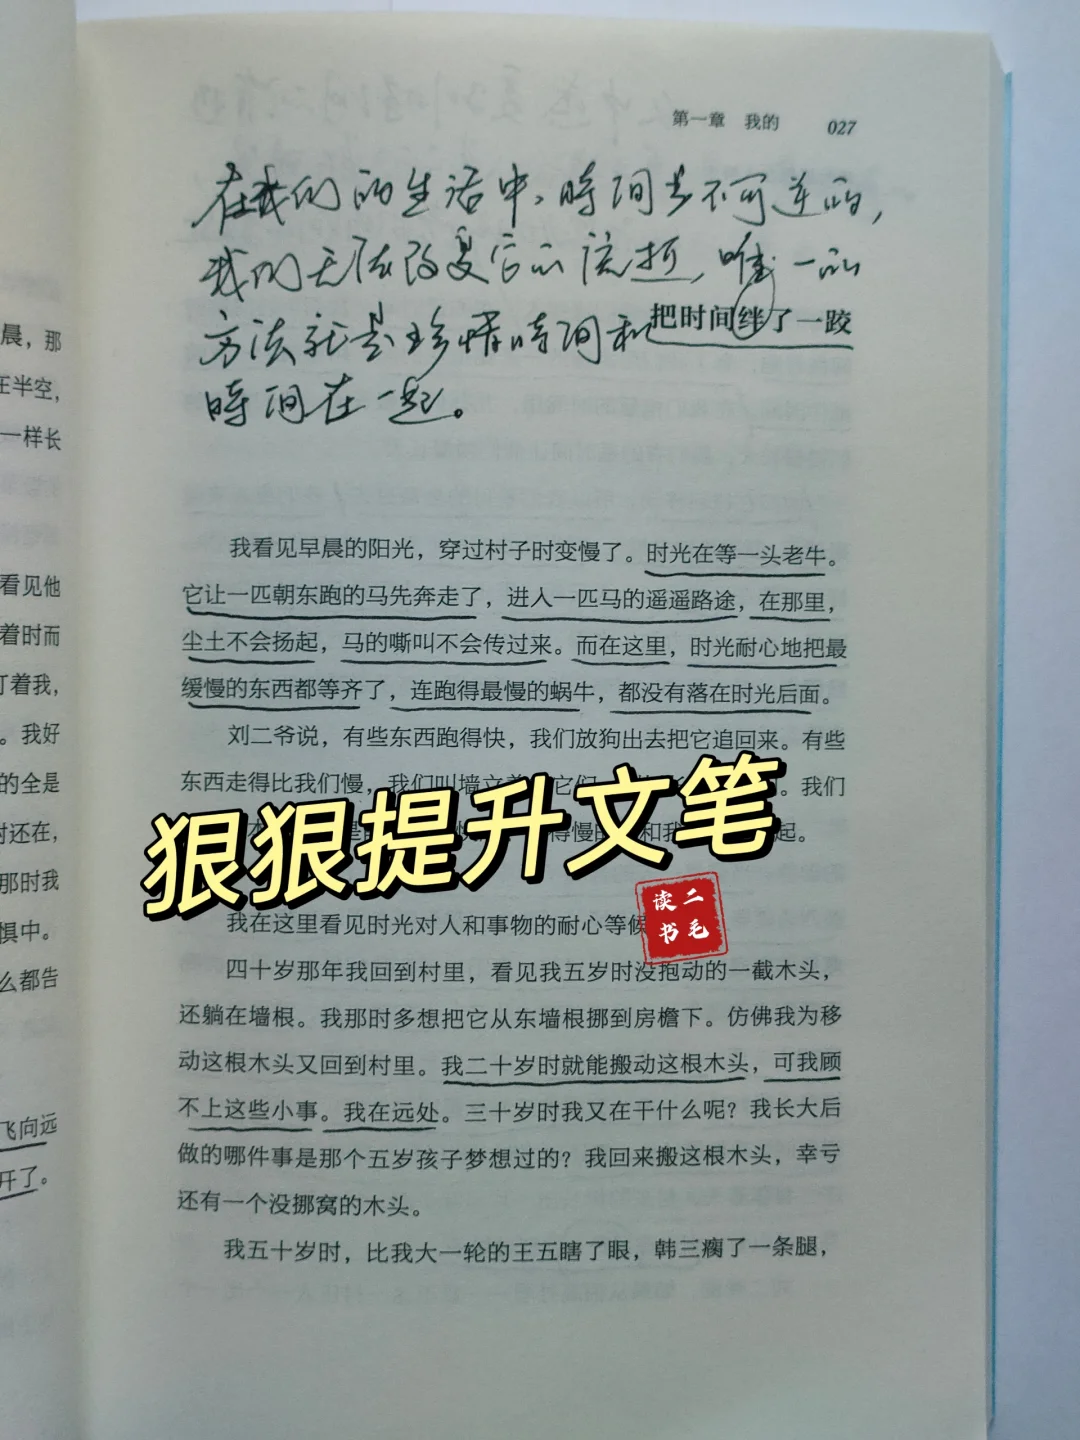 第一章 我的 027
在我们的生活中，時间是不可逆的，
我们无法改变它的流逝，唯一的
方法就是珍惜時间和
時间在一起。
把时间绊了一跤
我看见早晨的阳光，穿过村子时变慢了。时光在等一头老牛。
它让一匹朝东跑的马先奔走了，进入一匹马的遥遥路途，在那里，
尘土不会扬起，马的嘶叫不会传过来。而在这里，时光耐心地把最
缓慢的东西都等齐了，连跑得最慢的蜗牛，都没有落在时光后面。
刘二爷说，有些东西跑得快，我们放狗出去把它追回来。有些
东西走得比我们慢，我们叫墙立着
我们
和我
起。
狠狠提升文笔
二毛读书
我在这里看见时光对人和事物的耐心等候
四十岁那年我回到村里，看见我五岁时没抱动的一截木头，
还躺在墙根。我那时多想把它从东墙根挪到房檐下。仿佛我为移
动这根木头又回到村里。我二十岁时就能搬动这根木头，可我顾
不上这些小事。我在远处。三十岁时我又在干什么呢？我长大后
做的哪件事是那个五岁孩子梦想过的？我回来搬这根木头，幸亏
还有一个没挪窝的木头。
我五十岁时，比我大一轮的王五瞎了眼，韩三瘸了一条腿，
晨，那
在半空，
一样长
看见他
着时而
丁着我，
。我好
的全是
时还在，
那时我
惧中。
么都告
飞向远
开了。